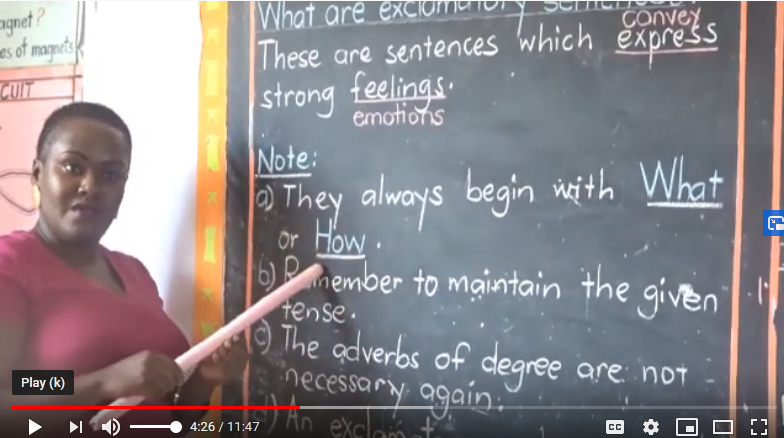 agnet?
es of magnets
CUIT
What are exclamatory sentences?
convey
These are sentences which express
strong feelings.
emotions
Note:
a) They always begin with What
or How.
b) Remember to maintain the given
tense.
c) The adverbs of degree are not
necessary again.
d) An exclamat
Play (k)
4:26 / 11:47
CC